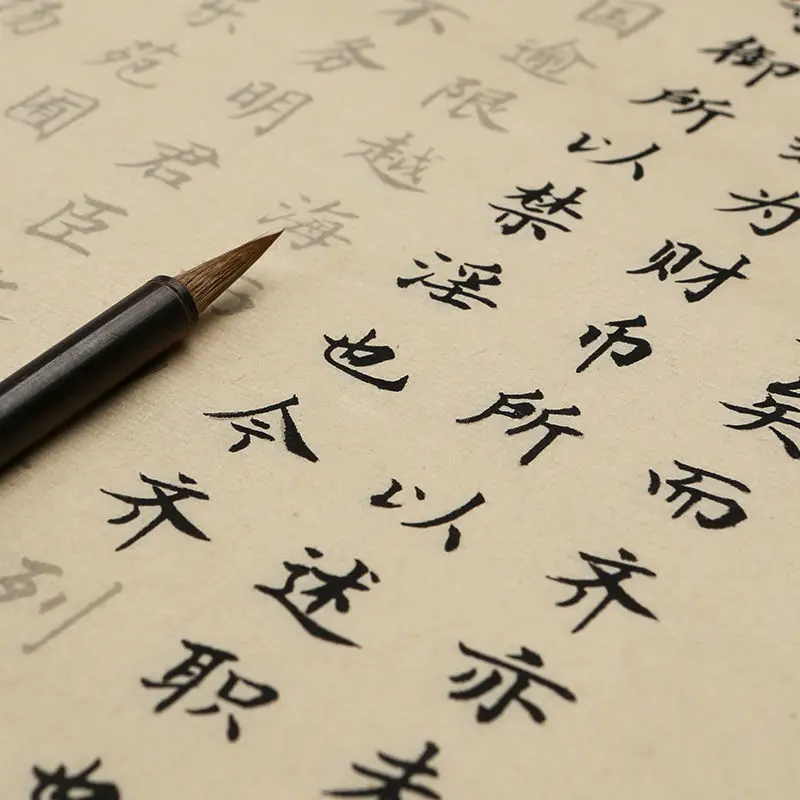 矣而齐亦未
为财币所以述职也
御所以禁淫也今齐列
国逾限越海
不务明君臣
乐苑囿
扬